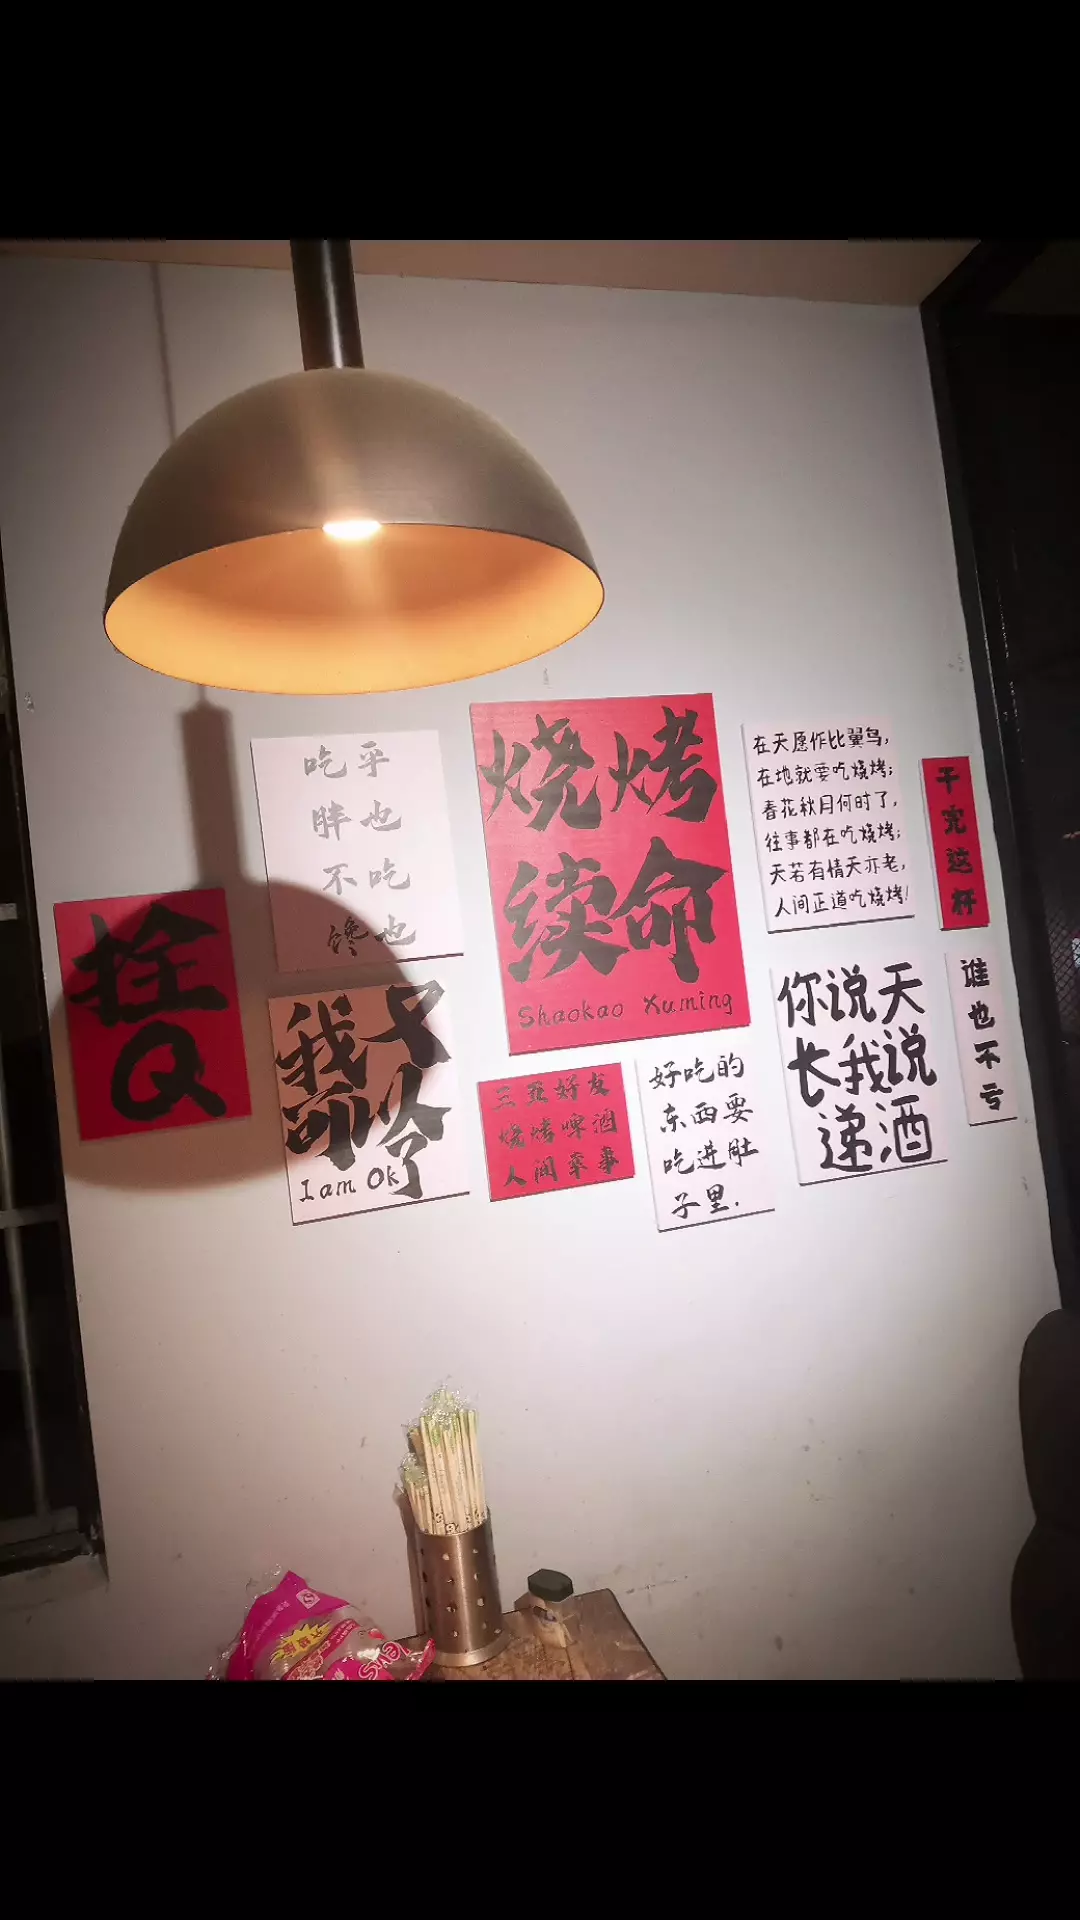 拴
Q
吃乎
胖也
不吃
馋也
我
I am Ok
烧烤
续命
Shaokao Xuming
三五好友
烧烤啤酒
人间 事
好吃的
东西要
吃进肚
子里.
在天愿作比翼鸟,
在地就要吃烧烤;
春花秋月何时了,
往事都在吃烧烤;
天若有情天亦老,
人间正道吃烧烤!
你说天
长我说
递酒
干完这杯
谁也不亏